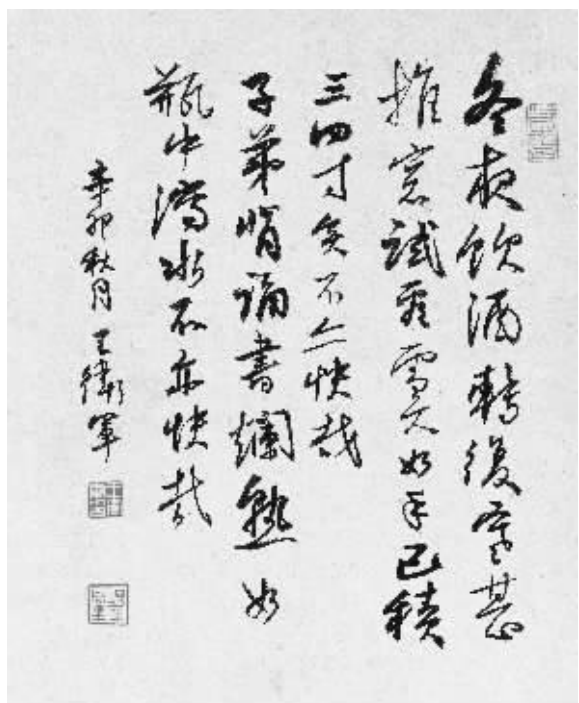 冬夜飲酒轉復寒甚
推窗試看雪大如手已積
三四寸矣不亦快哉
子弟背誦書爛熟如
瓶中瀉水不亦快哉
辛卯秋月王衛軍